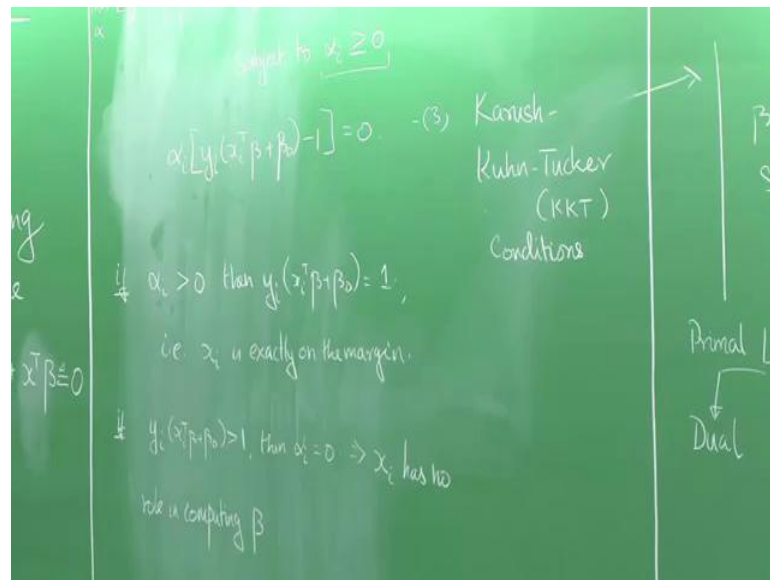 α
subject to αᵢ ≥ 0
αᵢ[yᵢ(xᵢᵀβ+β₀)-1] = 0. -(3)
Karush-
Kuhn-Tucker
(KKT)
Conditions
if αᵢ > 0 then yᵢ(xᵢᵀβ+β₀) = 1,
i.e. xᵢ is exactly on the margin.
if yᵢ(xᵢᵀβ+β₀) > 1, then αᵢ = 0 ⇒ xᵢ has no
role in computing β
ng
xᵀβ
0
β
Primal L
Dual